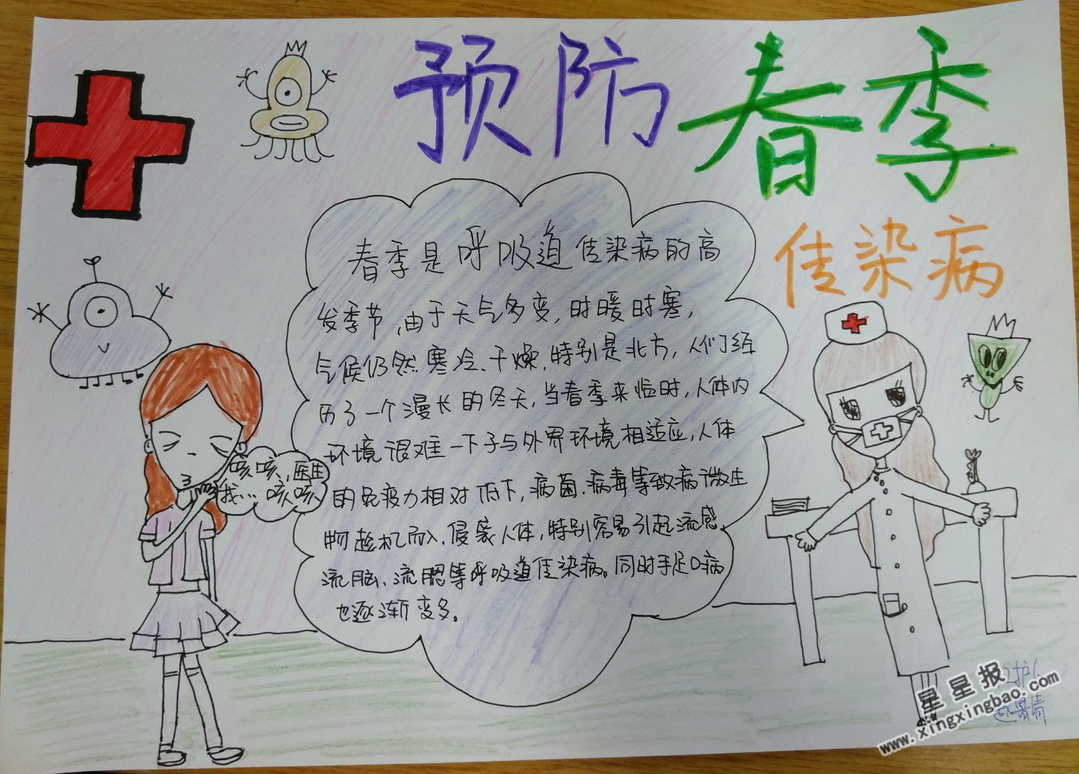 预防春季
传染病
春季是呼吸道传染病的高
发季节,由于天气多变,时暖时寒,
气候仍然寒冷、干燥,特别是北方,人们经
历了一个漫长的冬天,当春季来临时,人体内
环境很难一下子与外界环境相适应,人体
的免疫力相对低下,病菌、病毒等致病微生
物趁机而入,侵袭人体,特别容易引起流感、
流脑、流腮等呼吸道传染病。同时手足口病
也逐渐变多。
咳咳,医生
我...咳咳
星星报
www.xingxingbao.com